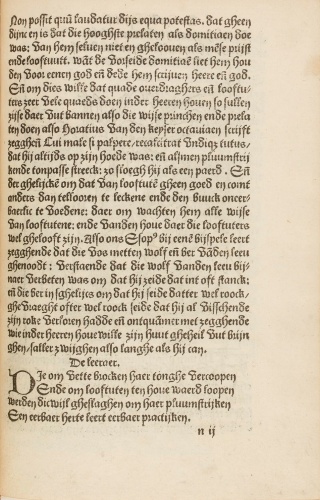 Non possit quū laudatur dijs equa potestas. dat gheen
dinc en is dat die hooghste prelaten als domitiaen doe
was: van hem seluen niet en gheloouen als mēse prijst
ende loeftuutt. wāt de voꝛseide domitiaē liet hem hou
den vooꝛ eenen god eñ dede hem scrijuen heere eñ god.
Eñ om dies wille dat quade ouerdraghers eñ looftu-
ters zeer vele quaeds doen in der heeren houen so sullen
zijse daer vut bannen also die wijse princhen ende prela
ten doen also Horatius van den keyser octauiaen scrijft
zegghēn Cui male si palpere/recalcitrat vndiqz tutus/
dat hij altijds op zijn hoede was: eñ alsmen pluumstrij
kende tonpasse streeck: zo sloegh hij als een paerd. Eñ
der ghelijckē om dat van looftutē gheen goed en comt
anders dan tellooren te leckene ende den buuck oneer-
baerlic te voedene: daer om wachten hem alle wijse
van looftutene: ende vanden houe daer die looftuters
wel ghelooft zijn. Also ons Esopꝰ bij eenē bijspele leert
zegghende dat die vos metten wolf eñ ber vādē leeu
ghenoodt: verstaende dat die wolf vanden leeu bij-
naer verbeten was om dat hij zeide dat int oft stanck:
eñ die ber in sghelijcs om dat hij seide datter wel roock/
ghevraeght ofter wel roock seide dat hij al visschende
zijn roke verloren hadde eñ ontquāmer met zegghende
wie in der heeren houe wille zijn huut gheheil vut bijn
ghen/saller zwijghen also langhe als hij can.
De leeraer.
Die om vette brocken haer tonghe vercoopen
Ende om looftuten ten houe waerd loopen
werden dicwijl gheslaghen om haer pluumstrijken
Een eerbaer herte leert eerbaer practijken.
n ij